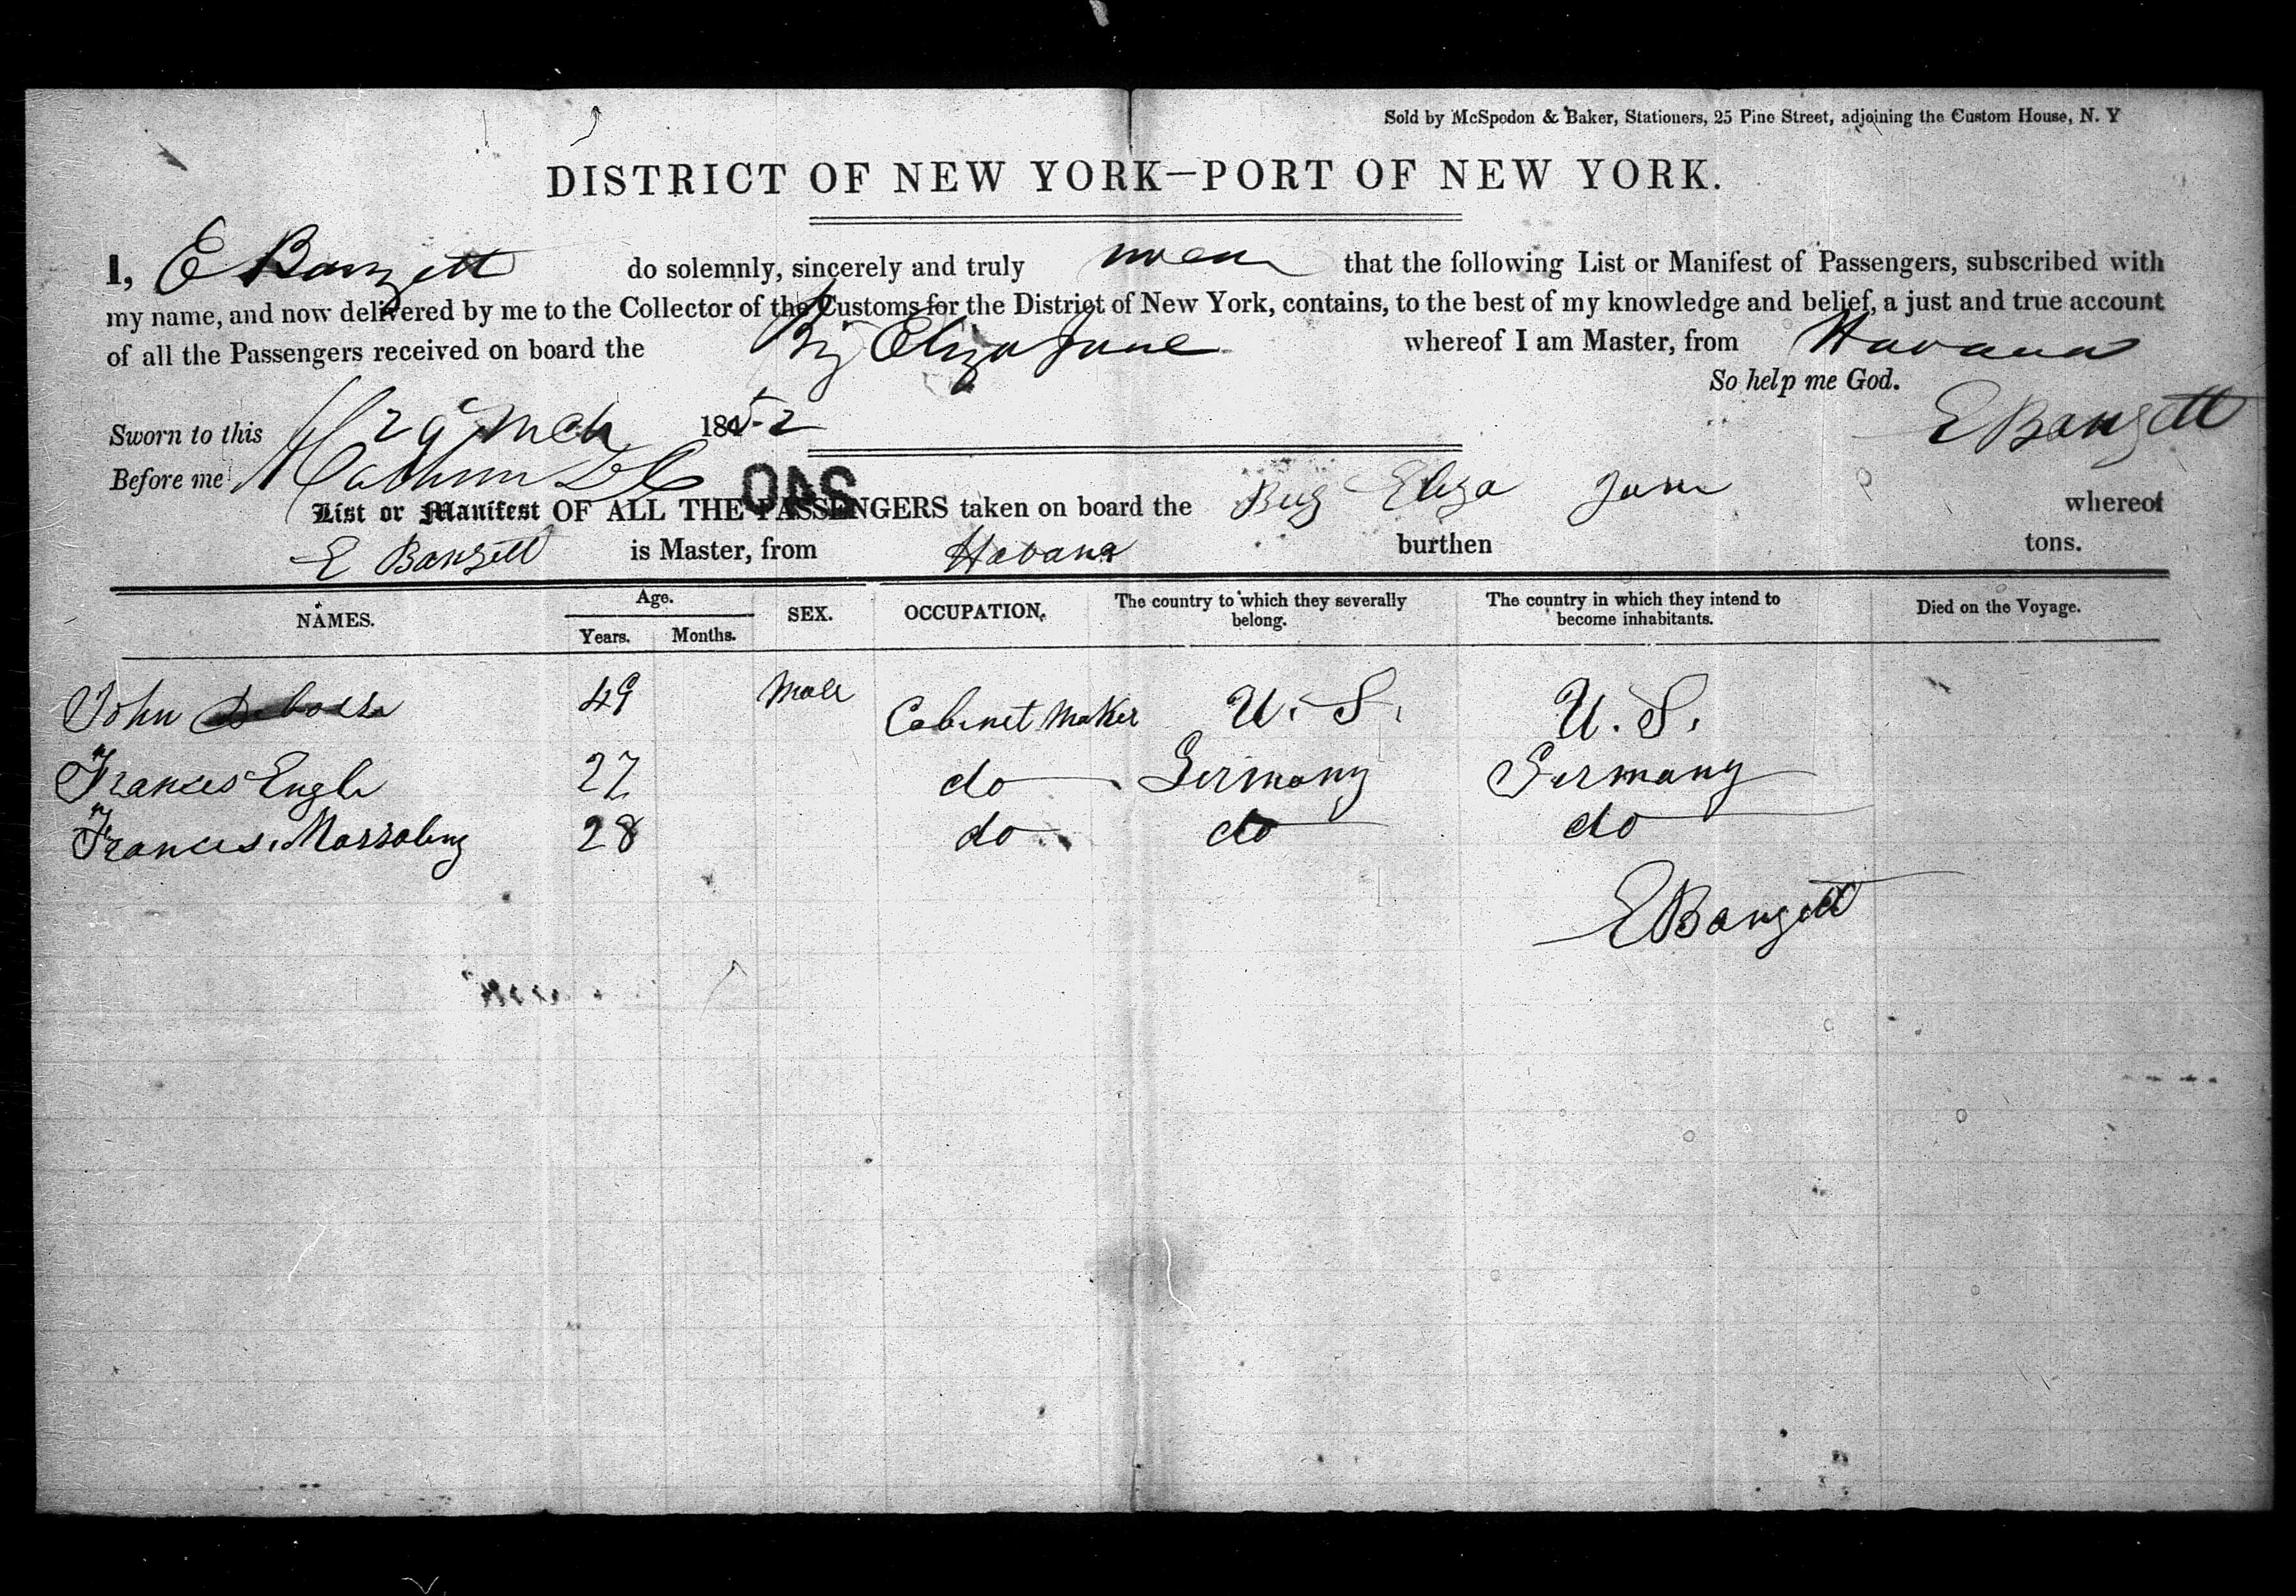 Sold by McSpedon & Baker, Stationers, 25 Pine Street, adjoining the Custom House, N. Y
DISTRICT OF NEW YORK—PORT OF NEW YORK.
I, E Bangett do solemnly, sincerely and truly swear that the following List or Manifest of Passengers, subscribed with
my name, and now delivered by me to the Collector of the Customs for the District of New York, contains, to the best of my knowledge and belief, a just and true account
of all the Passengers received on board the Brig Eliza Jane whereof I am Master, from Havana
So help me God.
Sworn to this 29 Mch 1852
E Bangett
Before me
540
List or Manifest OF ALL THE PASSENGERS taken on board the Brig Eliza Jane whereof
E Bangett is Master, from Havana burthen tons.
NAMES. Age. Years. Months. SEX. OCCUPATION. The country to which they severally belong. The country in which they intend to become inhabitants. Died on the Voyage.
John 49 Male Cabinet Maker U. S. U. S.
Frances Engle 27 do Germany Germany
Frances 28 do do do
E Bangett